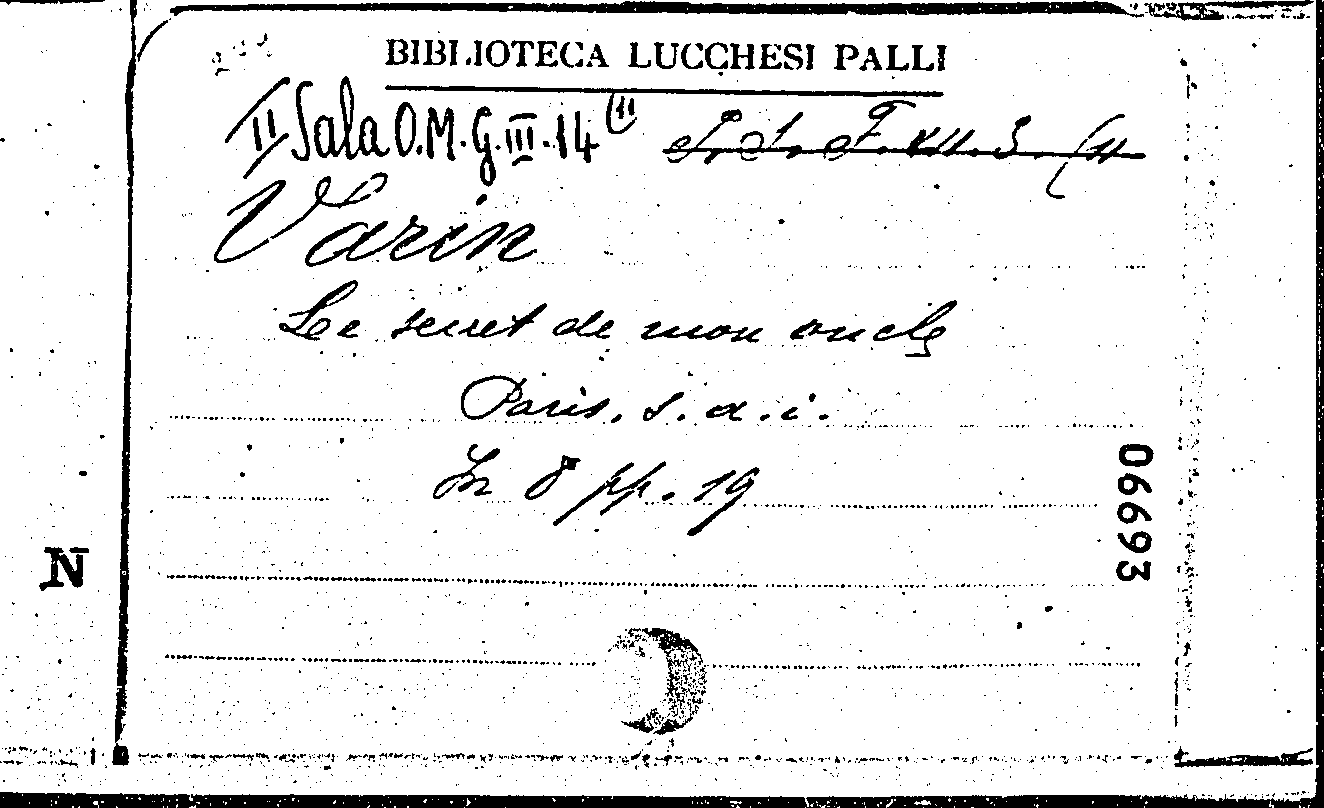 BIBLIOTECA LUCCHESI PALLI
II Sala O.M.G.III.14 (11
Varin
Le secret de mon oncle
Paris. s. a. i.
In 8° pp. 19
06693
N